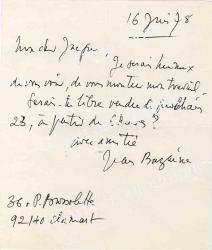 16 Juin 78
Mon cher Jacques,
Je serais heureux
de vous voir, de vous montrer mon travail.
Serais-tu libre vendredi prochain
23, à partir de heures ?
avec amitié
Jean Bazaine
36 r P. Brossolette
92140 Clamart